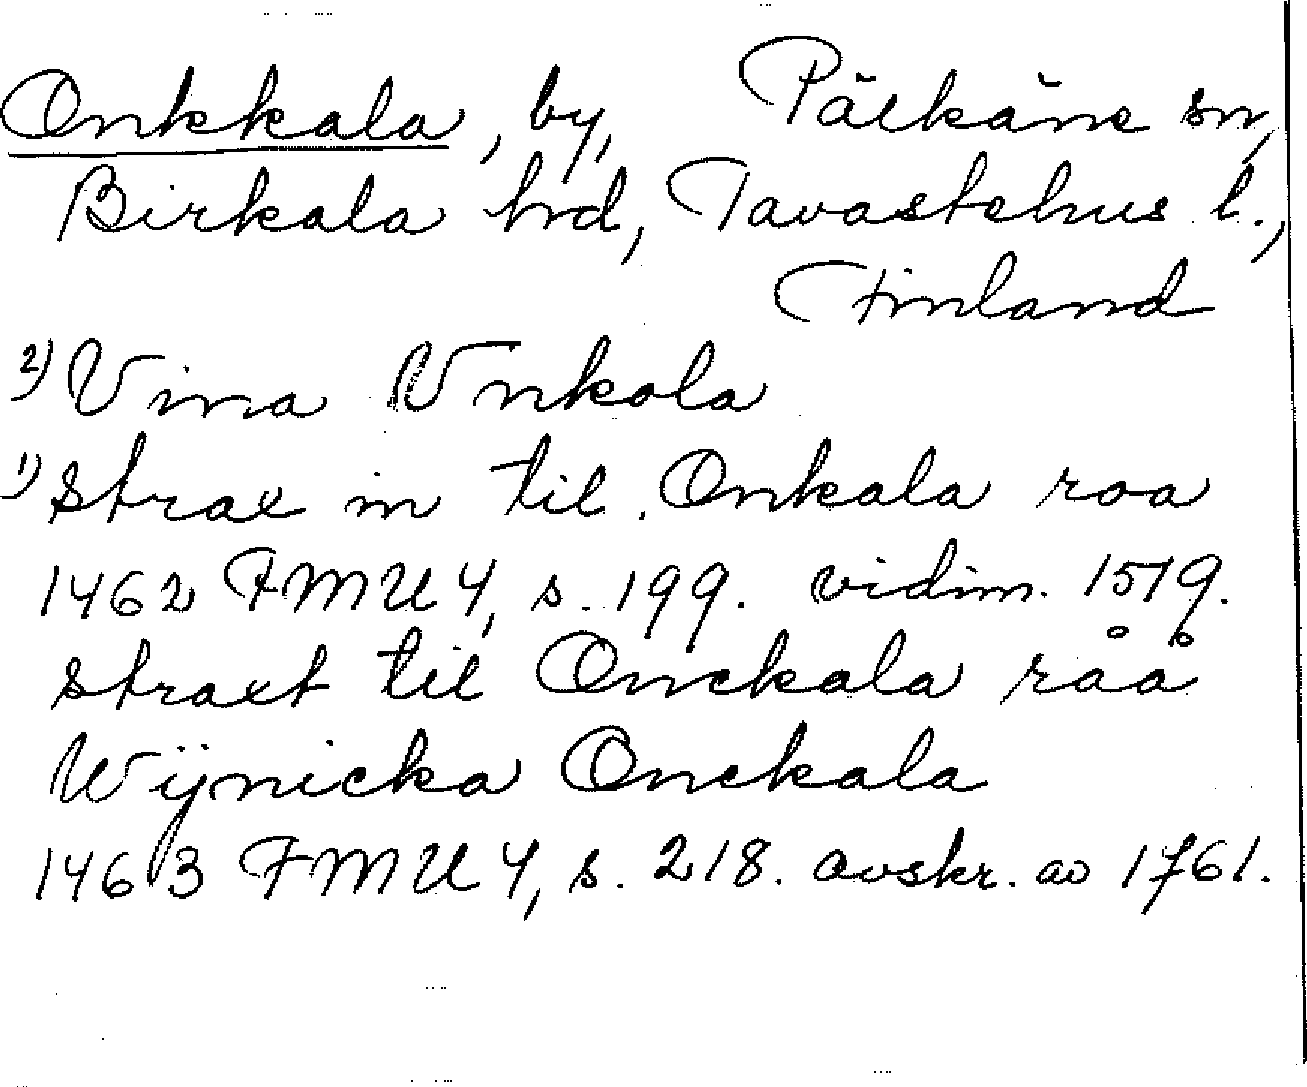 Onkkala, by, Pälkäne sn,
Birkala hrd, Tavastehus l.,
Finland
2) Vina Vnkala
1) strax in til Onkala roa
1462 FMU 4, s. 199. vidim. 1519.
straxt til Onckala råå
Wijnicka Onckala
1463 FMU 4, s. 218. avskr. av 1761.